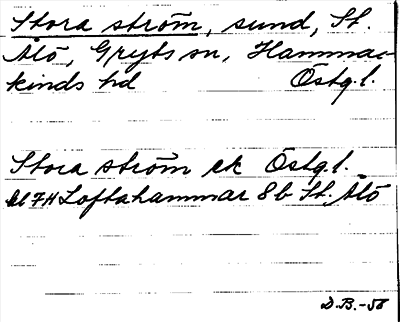 Stora ström, sund, St.
Ålö, Gryts sn, Hammar-
kinds hd Östg.l.
Stora ström ek Östg.l.
Bl 7H Loftahammar 8b St. Ålö
D.B.-58